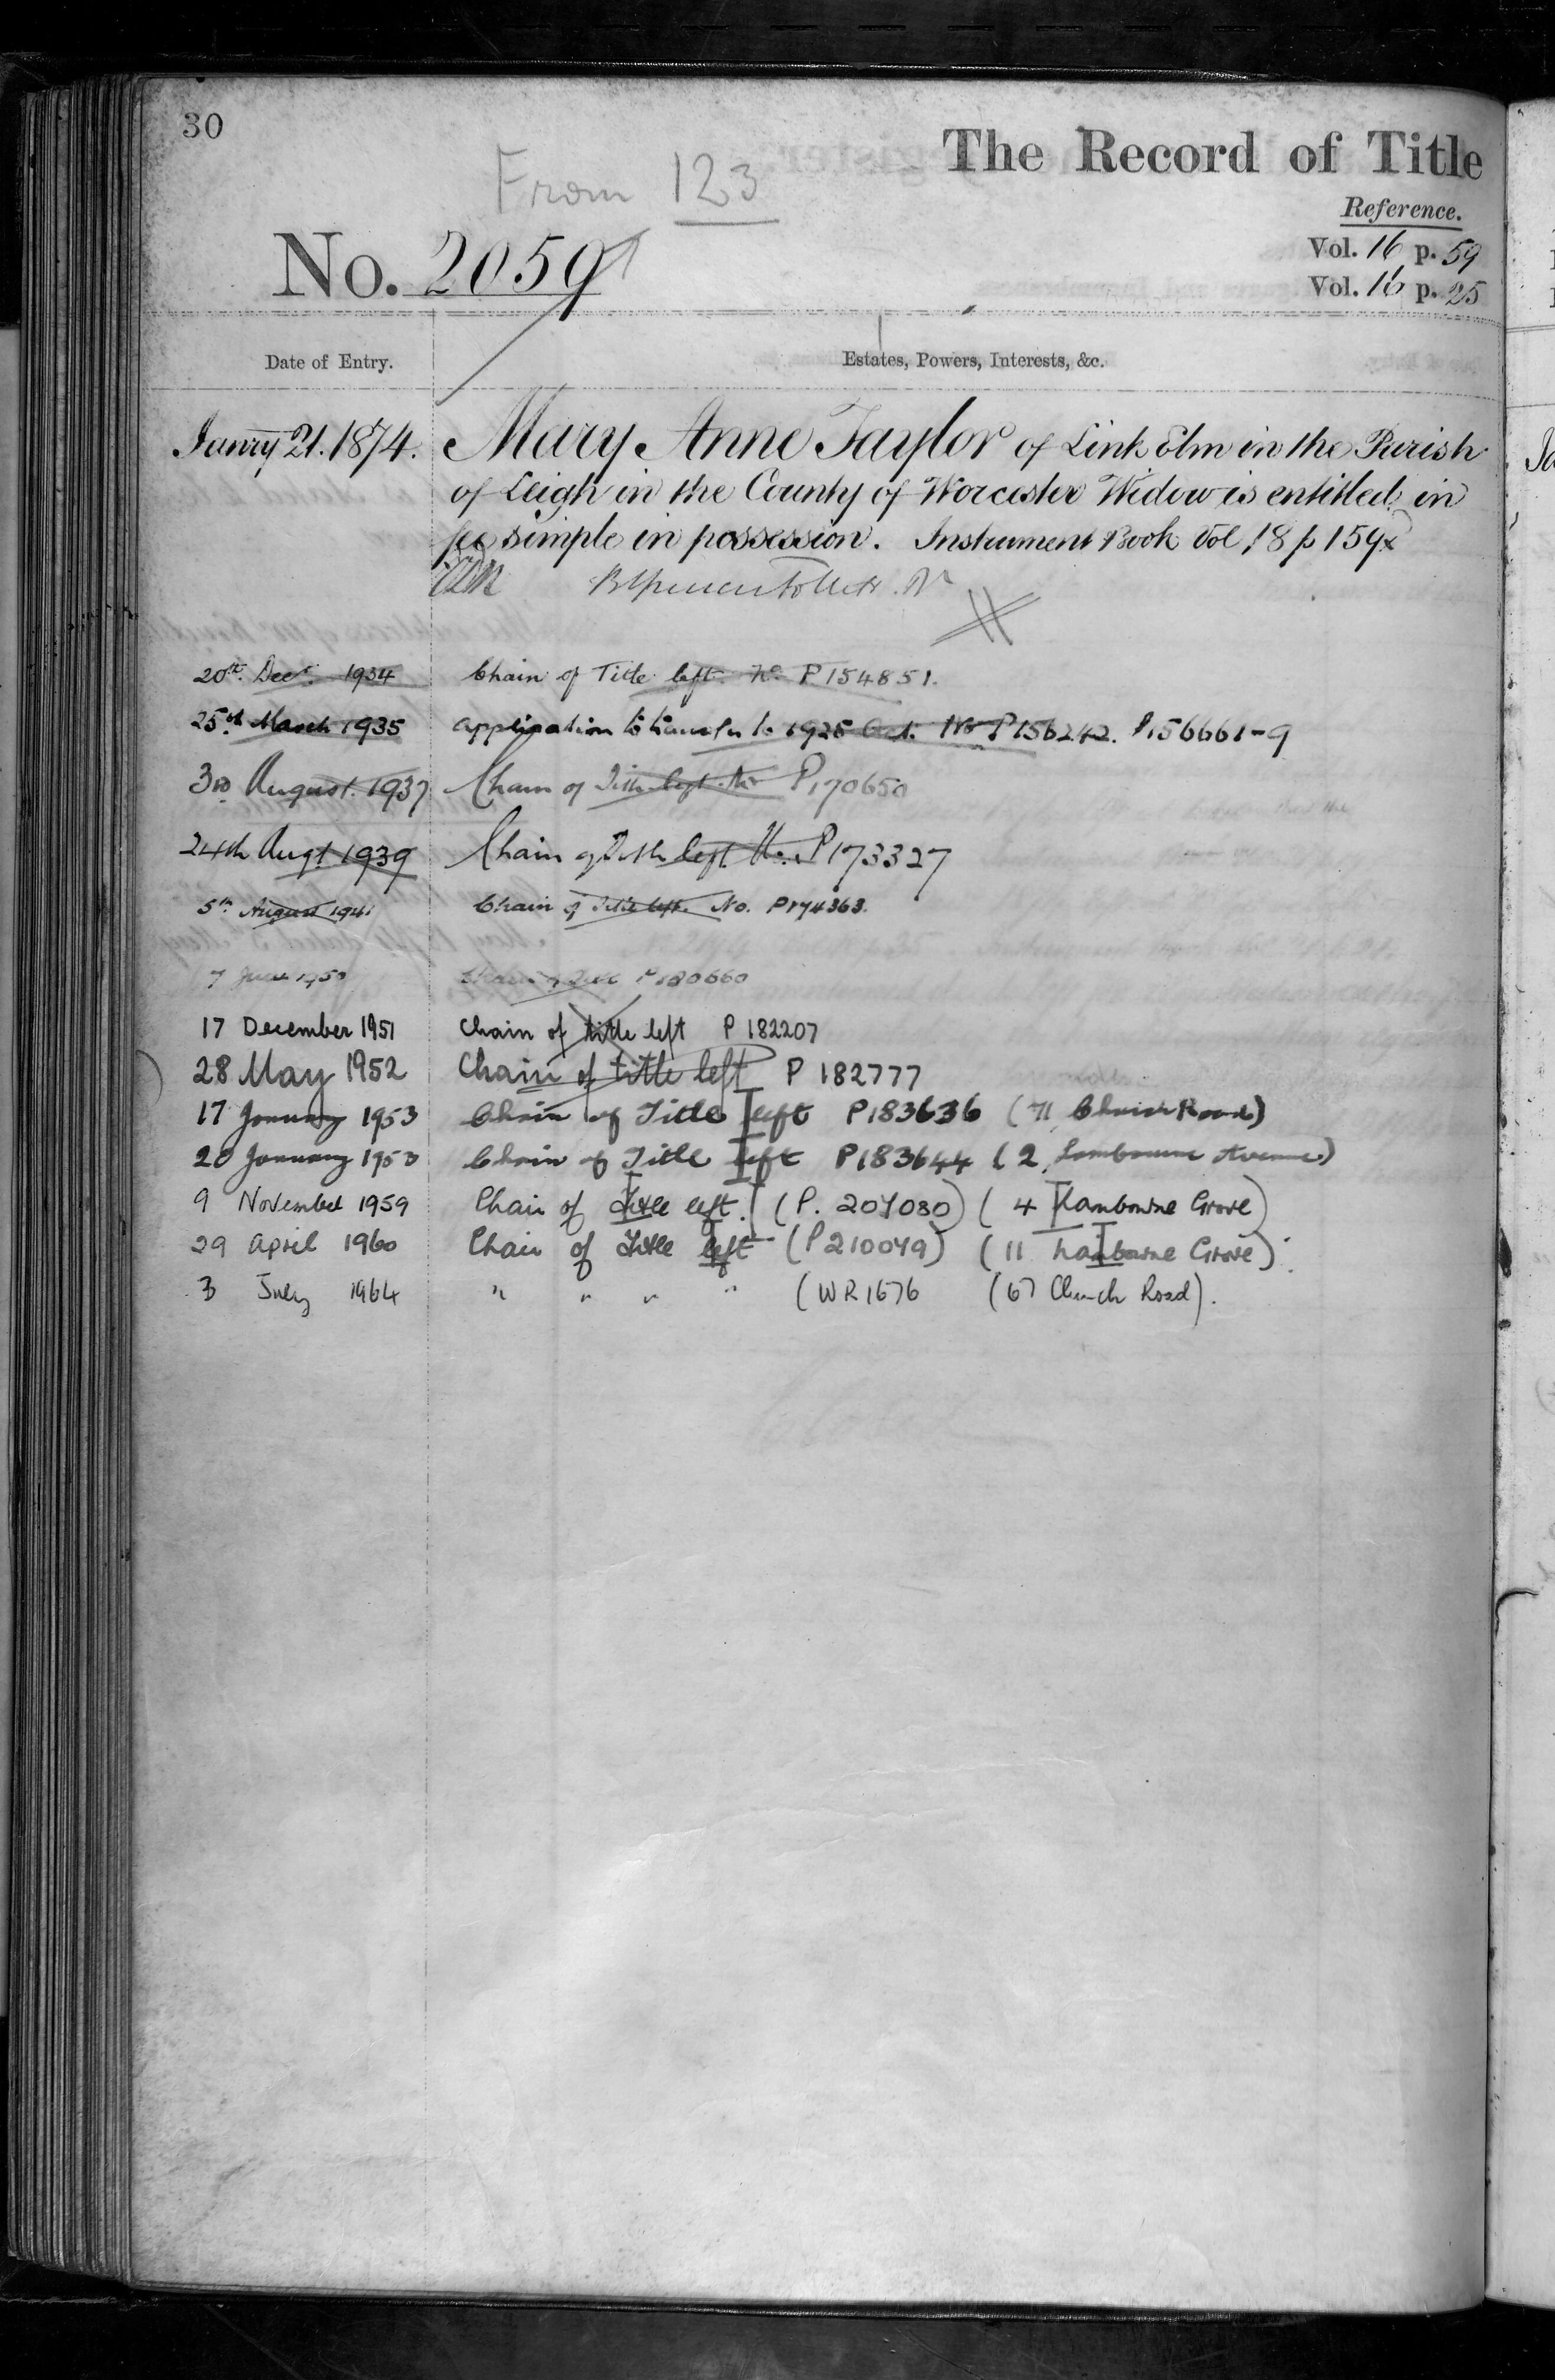 30
The Record of Title
From 123
Reference.
Vol. 16 p. 59
Vol. 16 p. 25
No. 2059
Date of Entry.
Estates, Powers, Interests, &c.
Janry 21. 1874. Mary Anne Taylor of Link Elm in the Parish
of Leigh in the County of Worcester Widow is entitled in
fee simple in possession. Instrument Book Vol 18 p 159
20th Decr 1934 Chain of Title left No P154851.
25th March 1935 application to transfer to 1925 Act. No P156242. P156661-9
3rd August 1937 Chain of Title left No P170650
24th Augt 1939 Chain of Title left No. P173327
5th August 1941 Chain of Title left. No. P174363.
7 June 1950 Chain of Title P180660
17 December 1951 Chain of title left P 182207
28 May 1952 Chain of title left P 182777
17 January 1953 Chain of Title left P183636 (71 Church Road)
20 January 1953 Chain of Title left P183644 (2 Lambourne Avenue)
9 November 1959 Chain of Title left. (P. 207080) (4 Lambourne Grove)
29 April 1960 Chain of Title left (P210049) (11 Lambourne Grove).
3 July 1964 " " " " (WR1676 (67 Church Road).